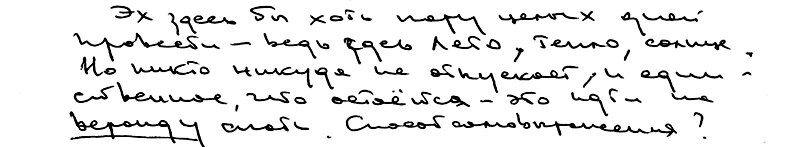 Эх здесь бы хоть пару целых дней
провести – ведь здесь лето, тепло, солнце.
Но никто никуда не отпускает, и един-
ственное, что остаётся – это идти на
веранду спать. Способ самовыражения?